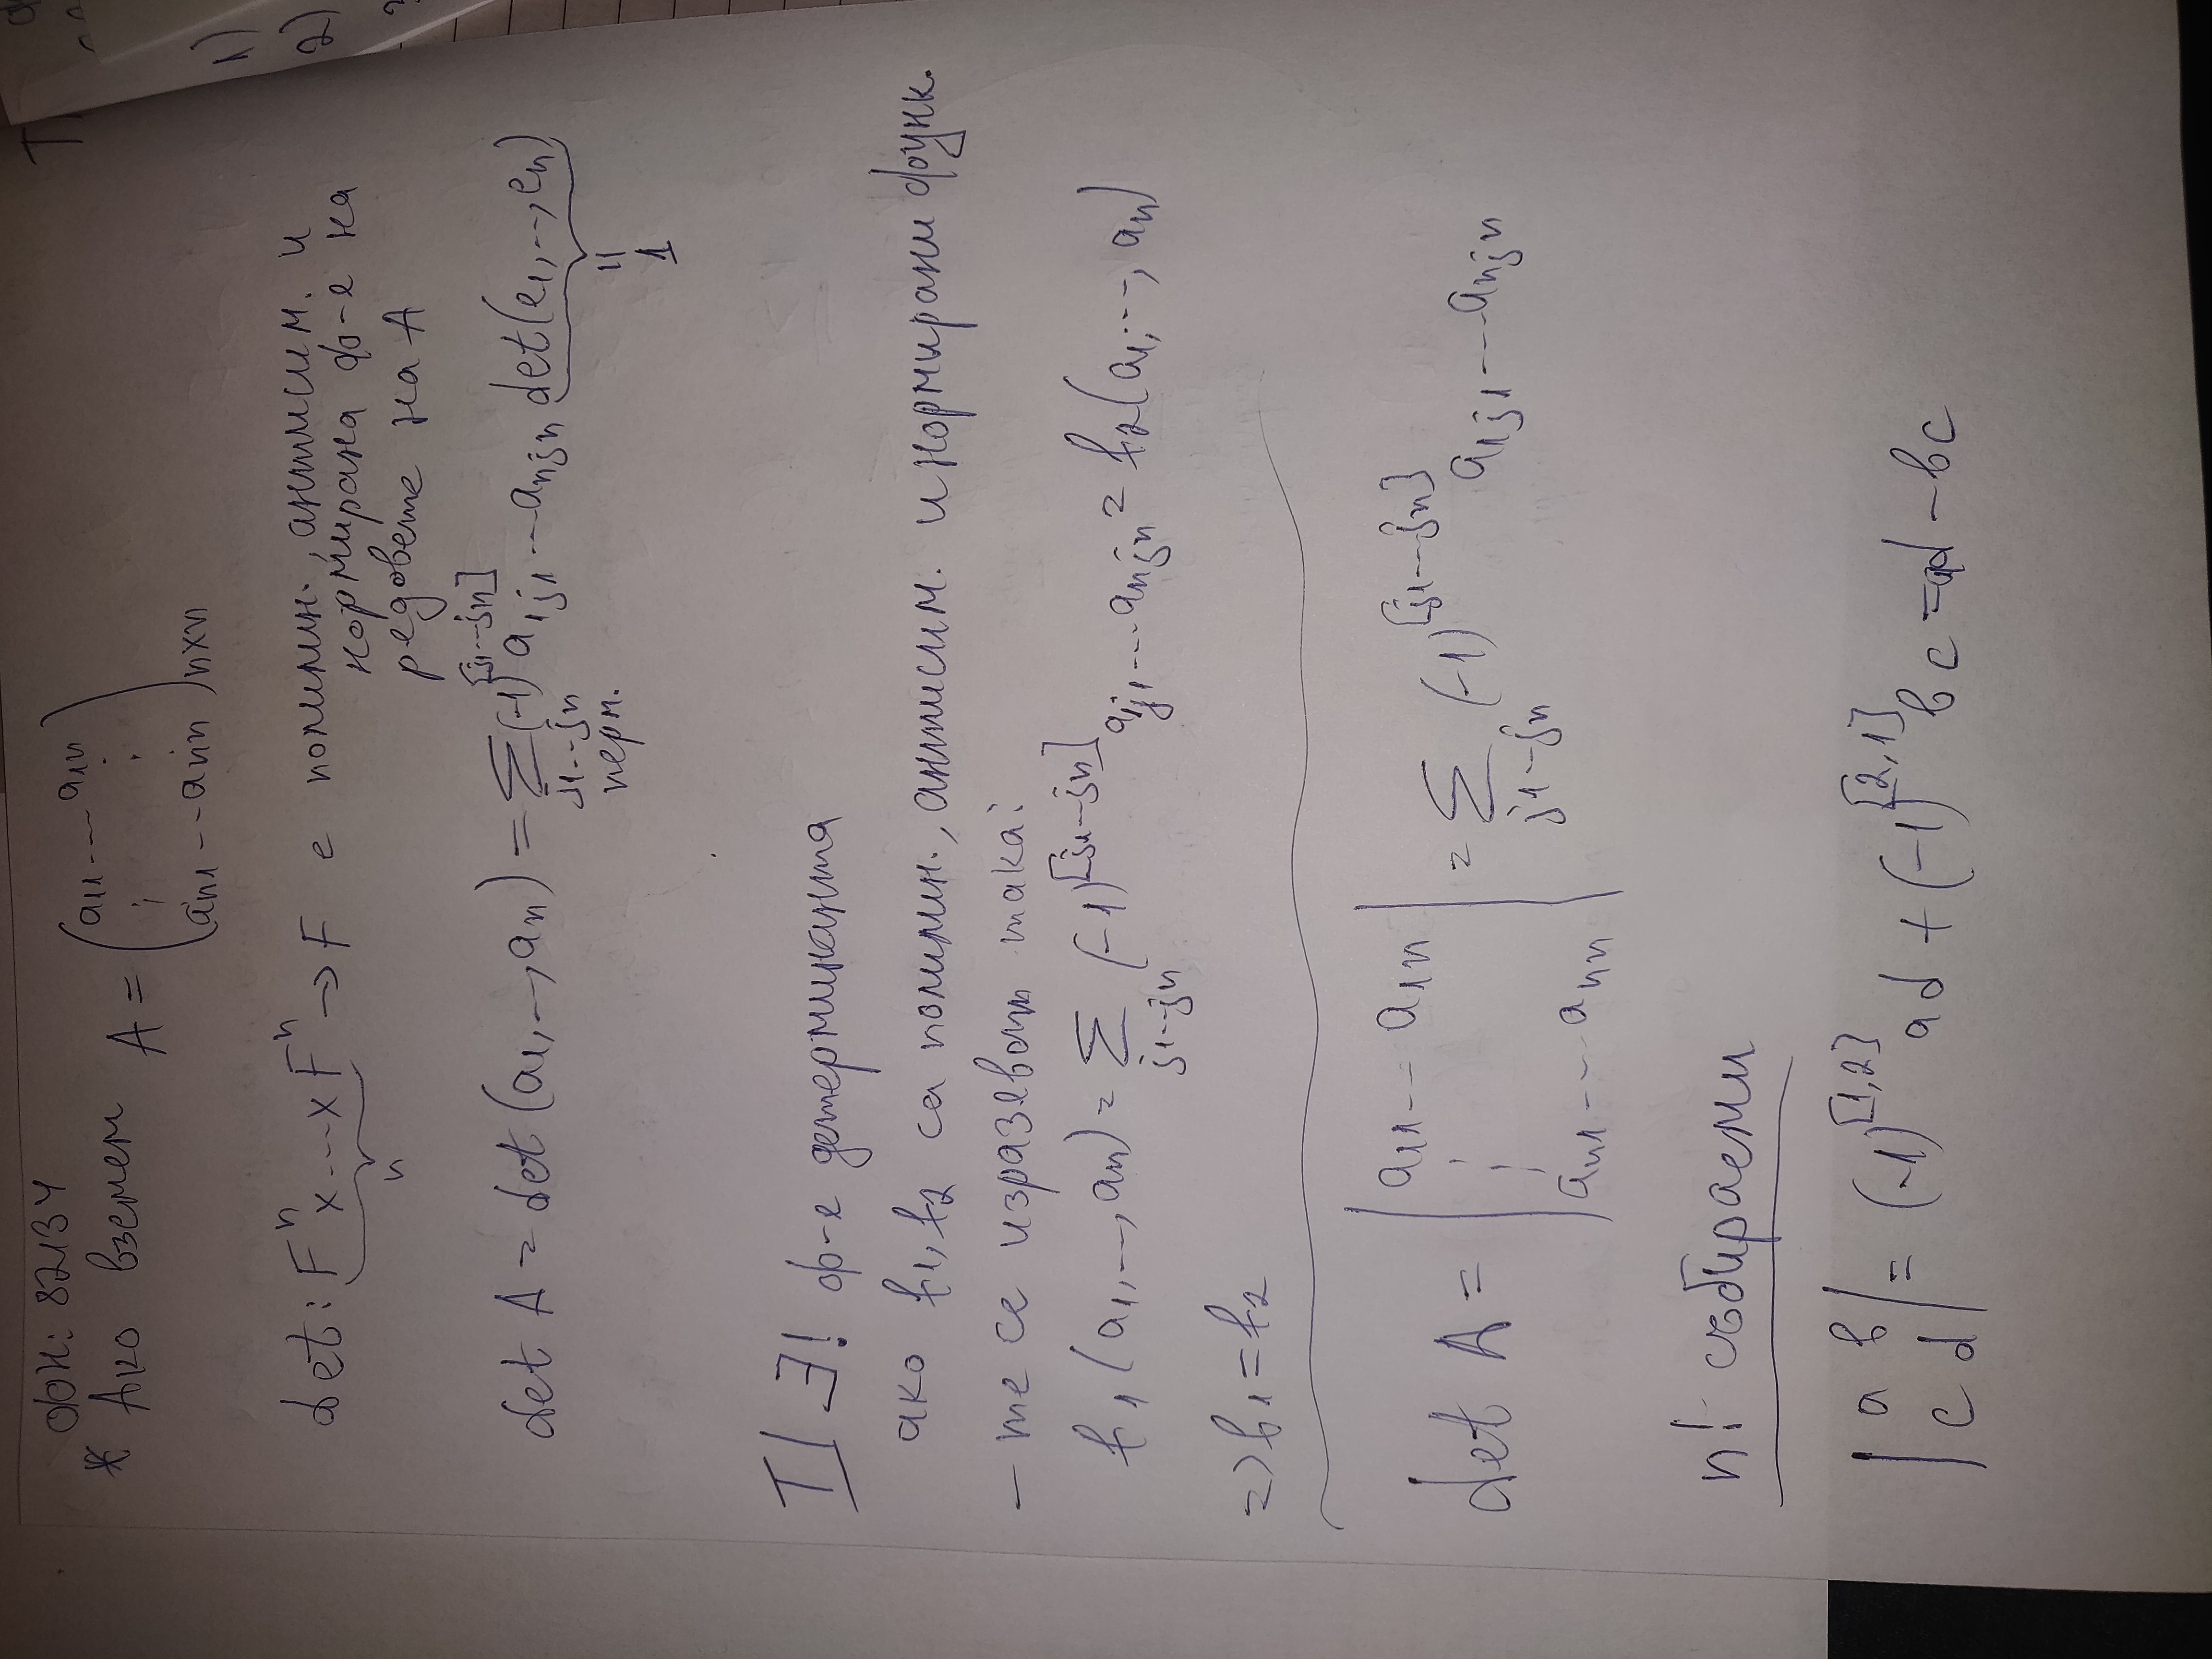 ФН: 82134
* Ако вземем A = (a11 ... a1n
⋮ ⋮
an1 ... ann)nxn
det: F^n x...x F^n → F е полилин., антисим. и
n
нормирана ф-е на
редовете на A
det A = det(a1,...,an) = Σ (-1)^[j1...jn] a1j1 ... anjn det(e1,...,en)
j1...jn
перм.
||
1
T| ∃! ф-е детерминанта
ако f1, f2 са полилин., антисим. и нормирани функ.
– те се изразеват така:
f1(a1,...,an) = Σ (-1)^[j1...jn] a1j1 ... anjn = f2(a1,...,an)
j1...jn
=> f1 = f2
det A = |a11 ... a1n
⋮
an1 ... ann| = Σ (-1)^[j1...jn] a1j1 ... anjn
j1...jn
n! събираеми
|a b
c d| = (-1)^[1,2] ad + (-1)^[2,1] bc = ad - bc
1)
2)